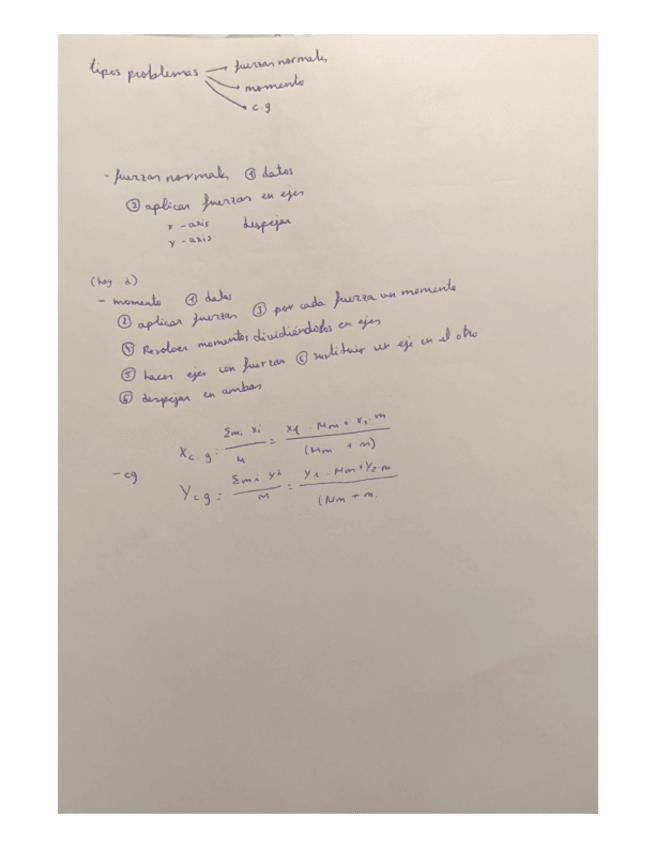 tipos problemas → fuerzas normales
→ momento
→ c.g
- fuerzas normales ① datos
② aplicar fuerzas en ejes
x - axis despejar
y - axis
(hay 2)
- momento ① datos
② aplicar fuerzas ③ por cada fuerza un momento
④ Resolver momentos dividiéndolos en ejes
⑤ hacer ejes con fuerzas ⑥ sustituir un eje en el otro
⑥ despejar en ambos
- cg
Xc.g = Σmi xi / M = x1 · Mm + x2 · m / (Mm + m)
Ycg = Σmi yi / M = y1 · Mm + y2 · m / (Mm + m.